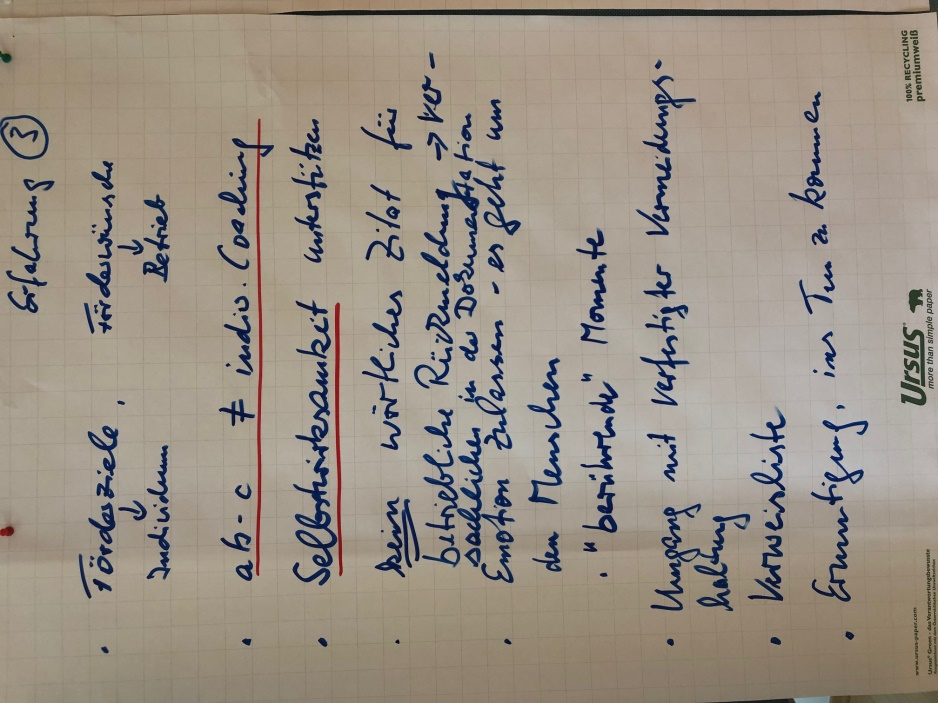 Erfahrung ③
• Förderziele, Förderwünsche
↓ ↓
Individuum Betrieb
• ab-c ≠ indiv. Coaching
• Selbstwirksamkeit unterstützen
• kein wörtliches Zitat für
betriebliche Rückmeldung → Ver-
sachlichen in der Dokumentation
• Emotion zulassen - es geht um
den Menschen
• "berührende" Momente
• Umgang mit verfestigter Vermeidungs-
haltung
• Verweisliste
• Ermutigung, ins Tun zu kommen
100% RECYCLING
premiumweiß
Ursus®
more than simple paper
www.ursus-paper.com